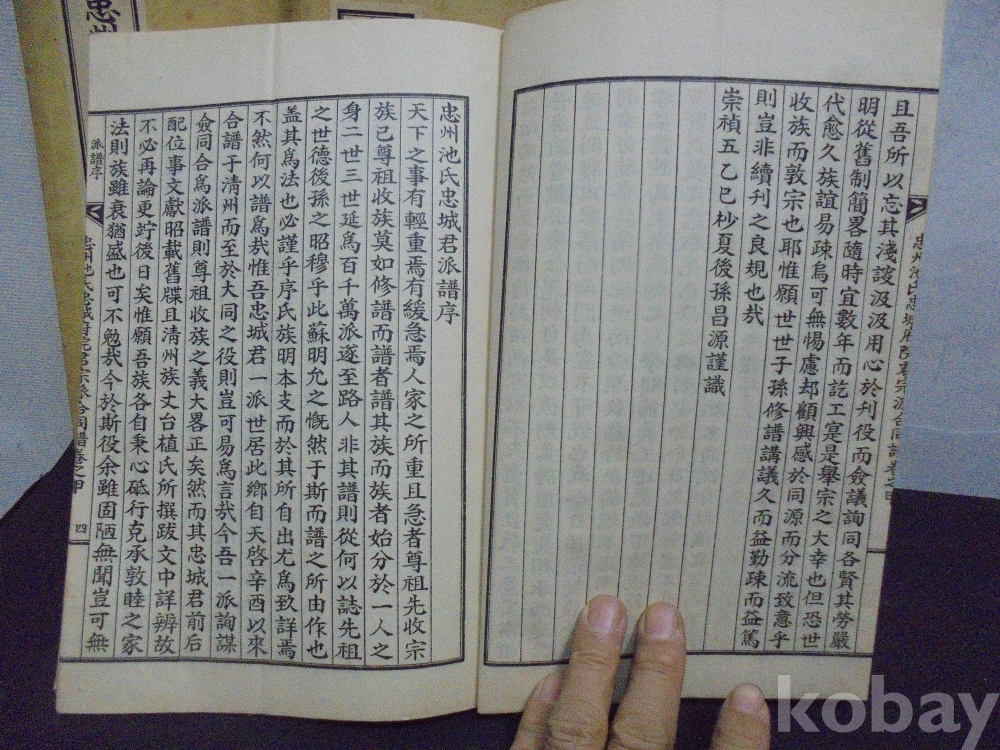 且吾所以忘其淺諓汲汲用心於刋役而僉議詢同各賢其勞嚴
明從舊制簡畧隨時宜數年而訖工寔是舉宗之大幸也但恐世
代愈久族誼易疎烏可無惕慮却顧興感於同源而分流致意乎
收族而敦宗也耶惟願世世子孫修譜講議久而益勤疎而益篤
則豈非續刋之良規也哉
崇禎五乙巳杪夏後孫昌源謹識
忠州池氏忠城君派譜序
天下之事有輕重焉有緩急焉人家之所重且急者尊祖先收宗
族已尊祖收族莫如修譜而譜者譜其族而族者始分於一人之
身二世三世延爲百千萬派逐至路人非其譜則從何以誌先祖
之世德後孫之昭穆乎此蘇明允之慨然于斯而譜之所由作也
盖其爲法也必謹乎序氏族明本支而於其所自出尤爲致詳焉
不然何以譜爲哉惟吾忠城君一派世居此鄉自天啓辛酉以來
合譜于淸州而至於大同之役則豈可易爲言哉今吾一派詢謀
僉同合爲派譜則尊祖收族之義大畧正矣然而其忠城君前后
配位事文獻昭載舊牒且淸州族丈台植氏所撰跋文中詳辨故
不必再論更竚後日矣惟願吾族各自秉心砥行克承敦睦之家
法則族雖衰猶盛也可不勉哉今於斯役余雖固陋無聞豈可無
派譜序
四
忠州
kobay